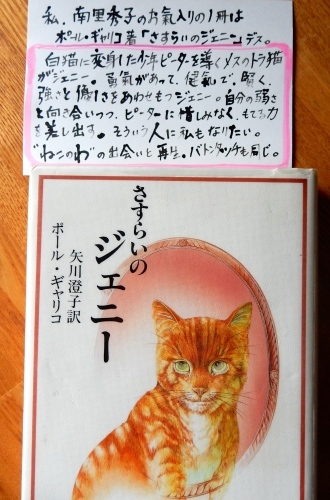 私、南里秀子のお気入りの1冊は
ポール・ギャリコ著「さすらいのジェニー」デス。
白猫に変身した少年ピーターを導くメスのトラ猫
がジェニー。勇気があって、健気で、賢く、
強さと優しさをあわせもつジェニー。自分の弱さ
と向き合いつつ、ピーターに惜しみなく、もてる力
を差し出す。そういう人に私もなりたい。
"ねこのわ"の出会いと再生。バトンタッチも同じ。
さすらいの
ジェニー
矢川澄子訳
ポール・ギャリコ